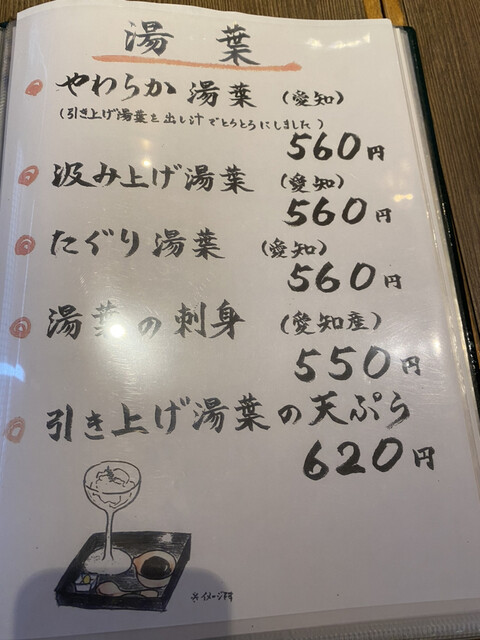 湯葉
やわらか湯葉 (愛知)
(引き上げ湯葉を出し汁でとろとろにしました)
560円
汲み上げ湯葉 (愛知)
560円
たぐり湯葉 (愛知)
560円
湯葉の刺身 (愛知産)
550円
引き上げ湯葉の天ぷら
620円
※イメージです